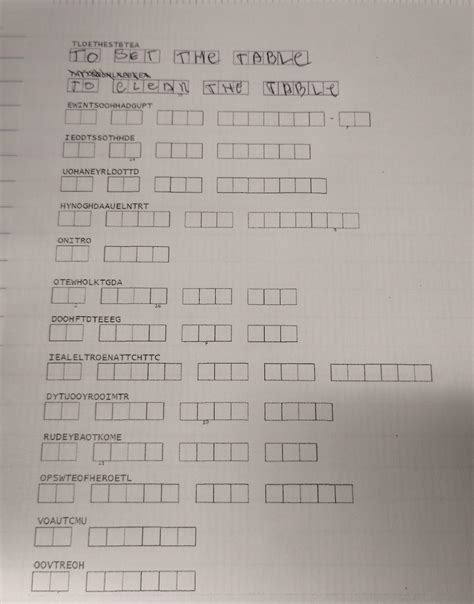 TLOETHESTBTEA
TO SET THE TABLE
TO CLEAN THE TABLE
EWINTSOOHHADGUPT
-
IEODTSSOTHHDE
UOHANEYRLDOTTD
HYNOGHDAAUELNTRT
ONITRO
OTEWHOLKTGDA
DOOHFTDTEEEG
IEALELTROENATTCHTTC
DYTUOOYROOIMTR
RUDEYBAOTKOME
OPSWTEOFHEROETL
VOAUTCMU
OOVTREOH